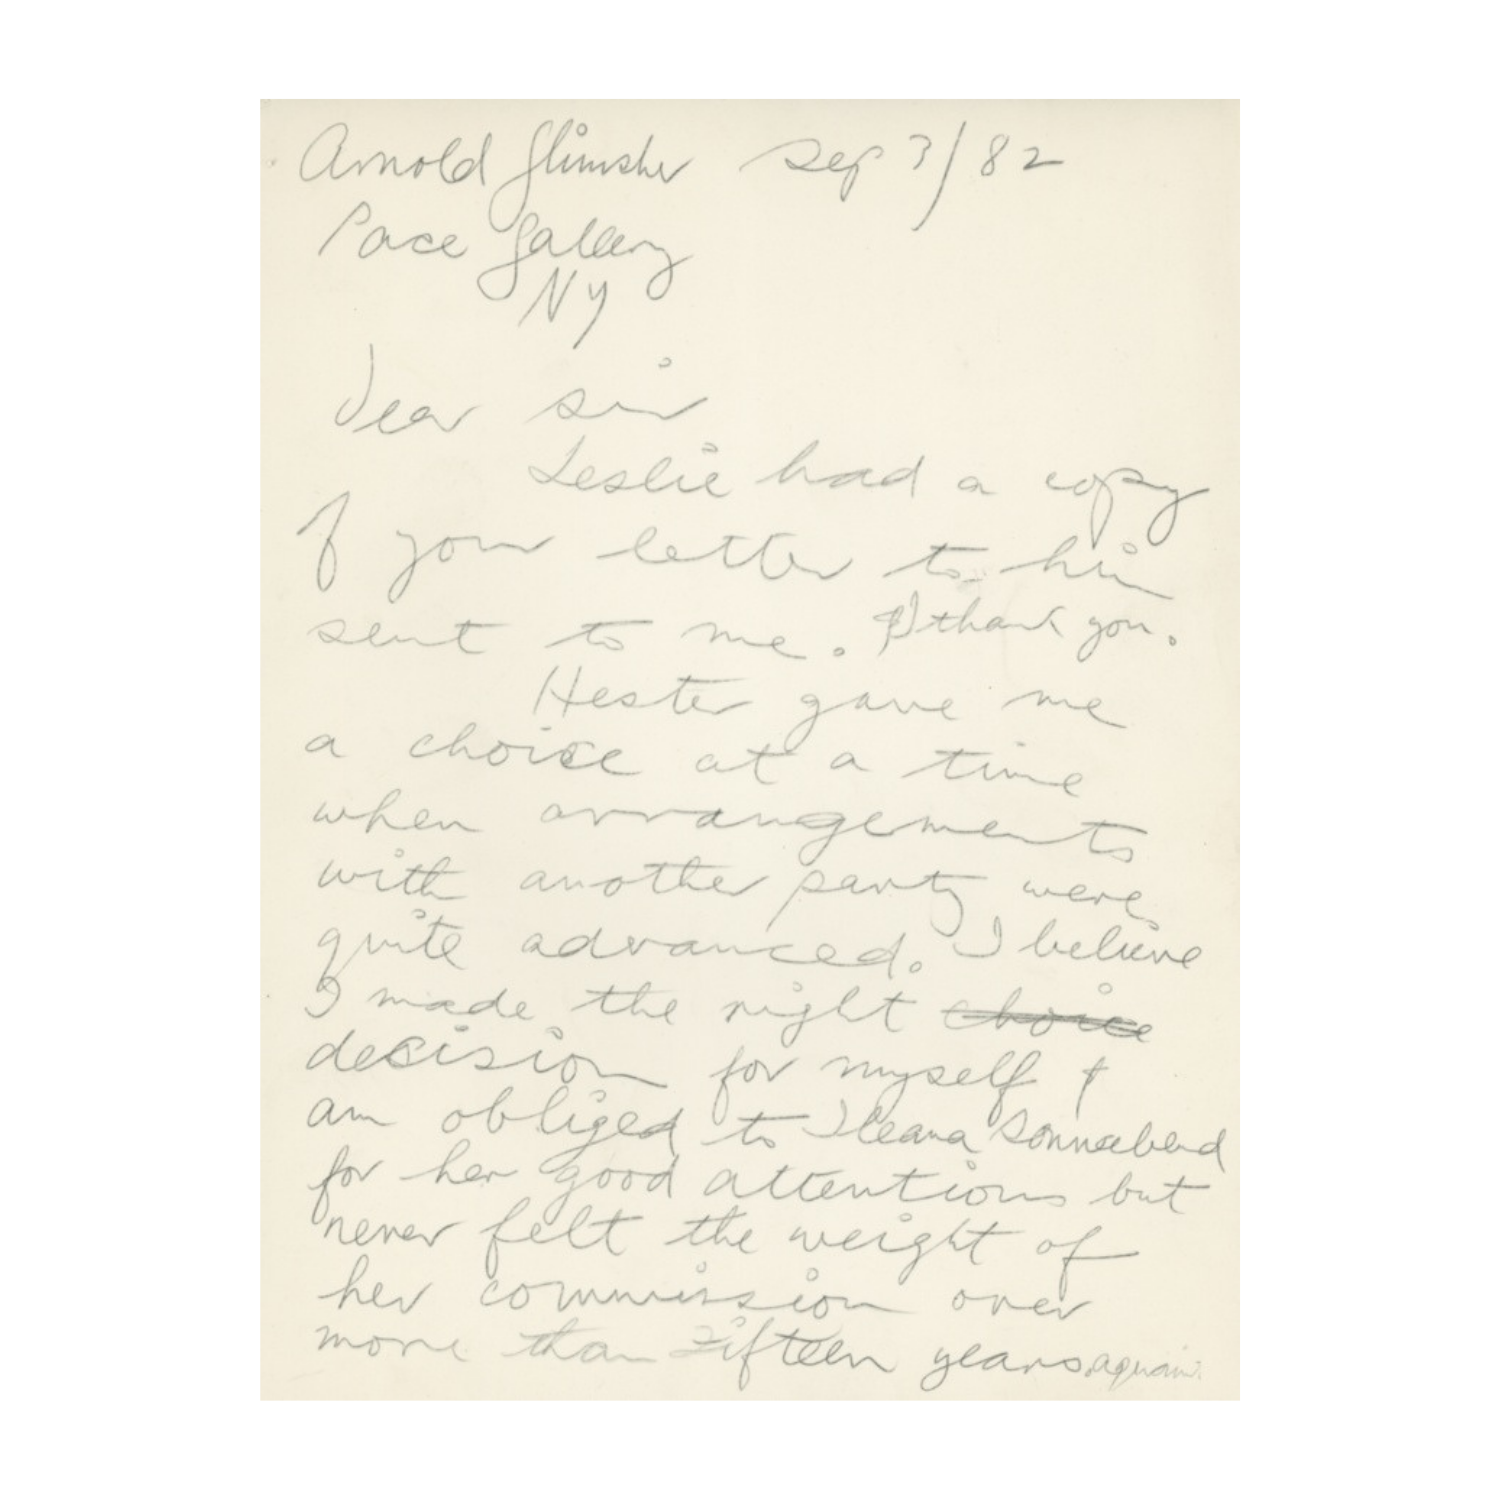 Arnold Glimsher Sep 3/82
Pace Gallery
NY
Dear sir
Leslie had a copy
of your letter to him
sent to me. I thank you.
Hester gave me
a choice at a time
when arrangements
with another party were
quite advanced. I believe
I made the right choice
decision for myself &
am obliged to Ileana Sonnabend
for her good attentions but
never felt the weight of
her commission over
more than fifteen years